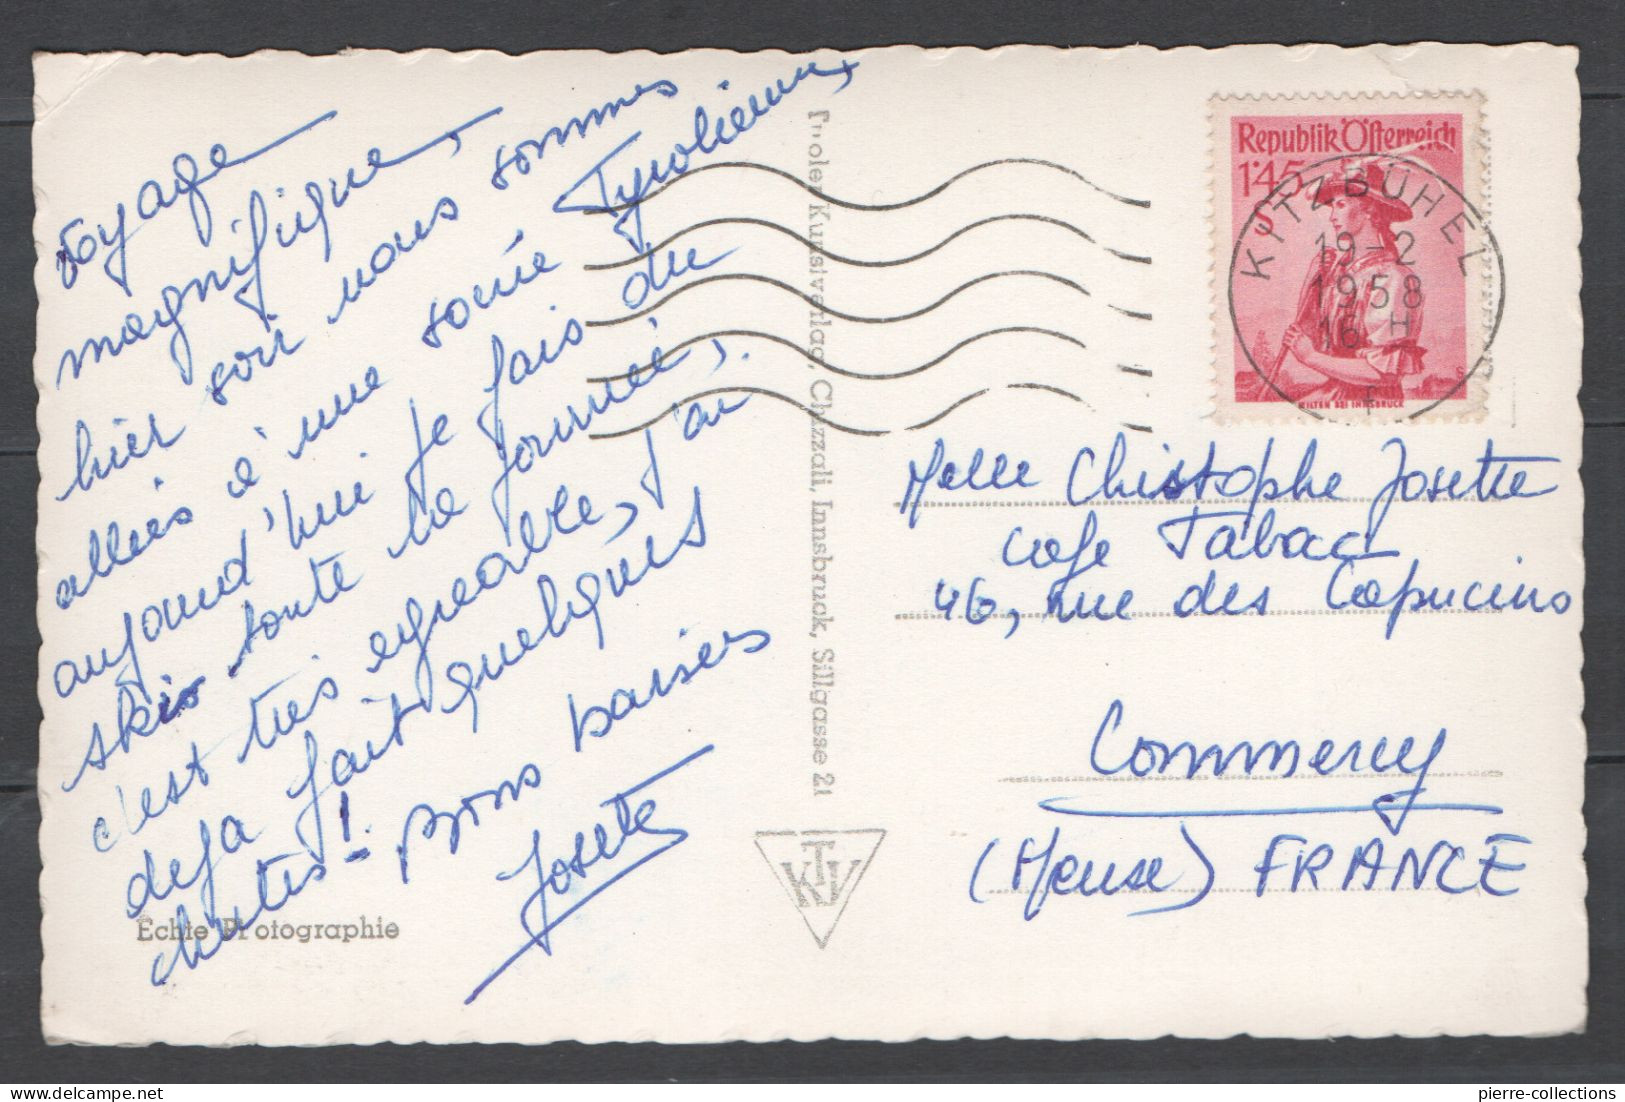 voyage
magnifique,
hier soir nous sommes
allées à une soirée Tyrolienne,
aujourd'hui je fais du
skis toute la journée,
c'est très agréable, j'ai
déjà fait quelques
chutes! Bons baisers
Josette
Echte Photographie
Tiroler Kunstverlag, Chizzali, Innsbruck, Sillgasse 21
KTV
Republik Österreich
1'45
S
WILTEN BEI INNSBRUCK
KITZBÜHEL
19-2
1958
16 H
f
Melle Christophe Josette
Cafe Tabac
46, rue des Capucins
Commercy
(Meuse) FRANCE
pierre-collections